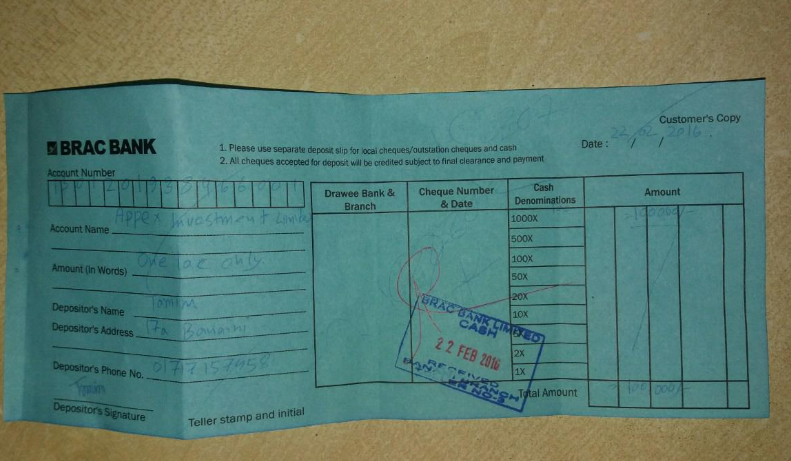 Customer's Copy
BRAC BANK
1. Please use separate deposit slip for local cheques/outstation cheques and cash
2. All cheques accepted for deposit will be credited subject to final clearance and payment
Date : 22/02/2016
Account Number
Account Name Appex Investment Limited
Amount (In Words) One lac only.
Depositor's Name
Depositor's Address
Depositor's Phone No.
Depositor's Signature
Teller stamp and initial
Drawee Bank & Branch
Cheque Number & Date
Cash Denominations
Amount
1000X
100000/-
500X
100X
50X
20X
10X
2X
1X
Total Amount 100,000/-
BRAC BANK LIMITED
CASH
22 FEB 2016
RECEIVED